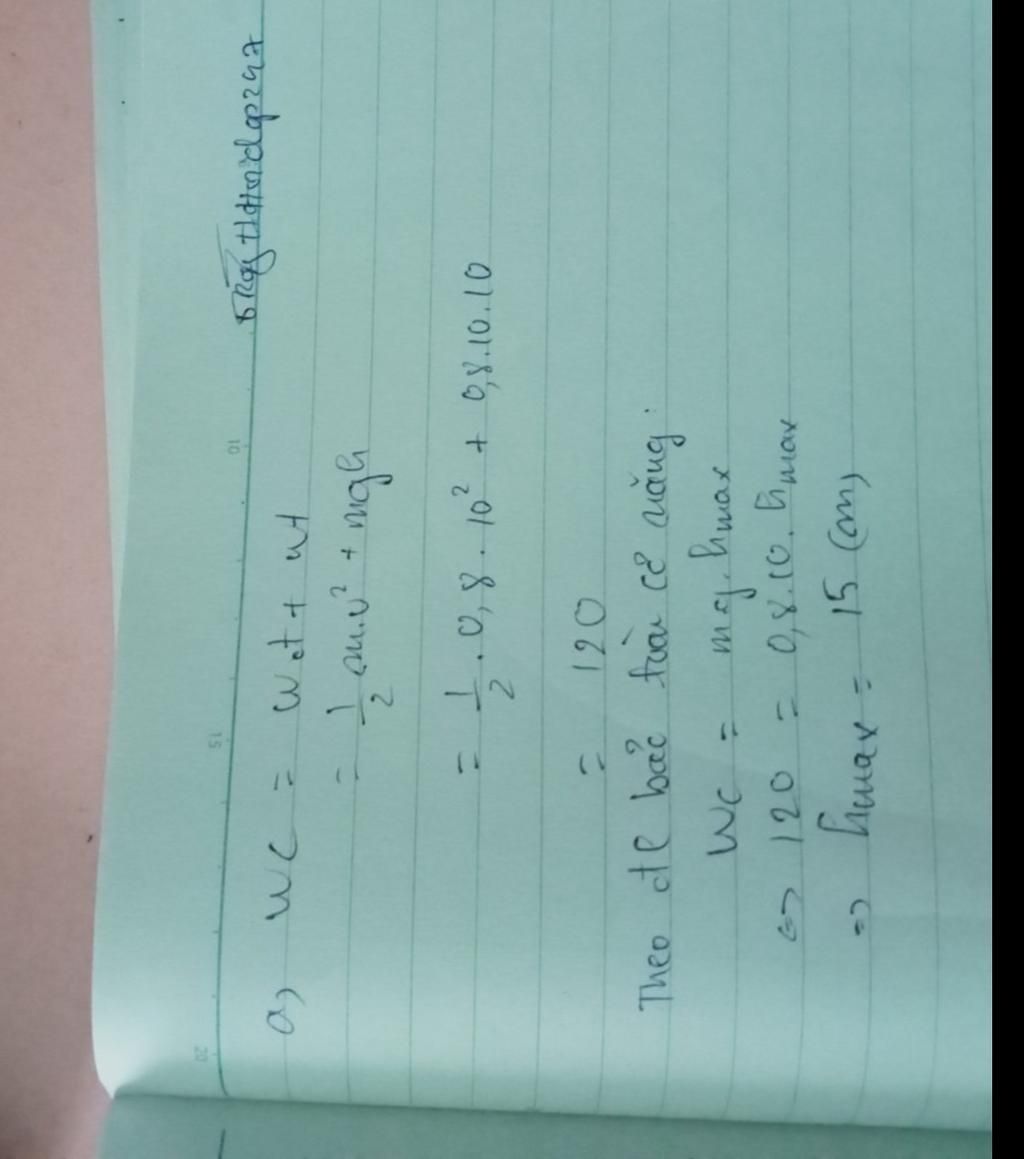 a, WC = Wđ + Wt
= 1/2 m.v² + mgh
= 1/2 . 0,8 . 10² + 0,8.10.10
= 120
Theo đl bảo toàn cơ năng:
WC = mg.hmax
<=> 120 = 0,8.10.hmax
=> hmax = 15 (m)
10
15
20